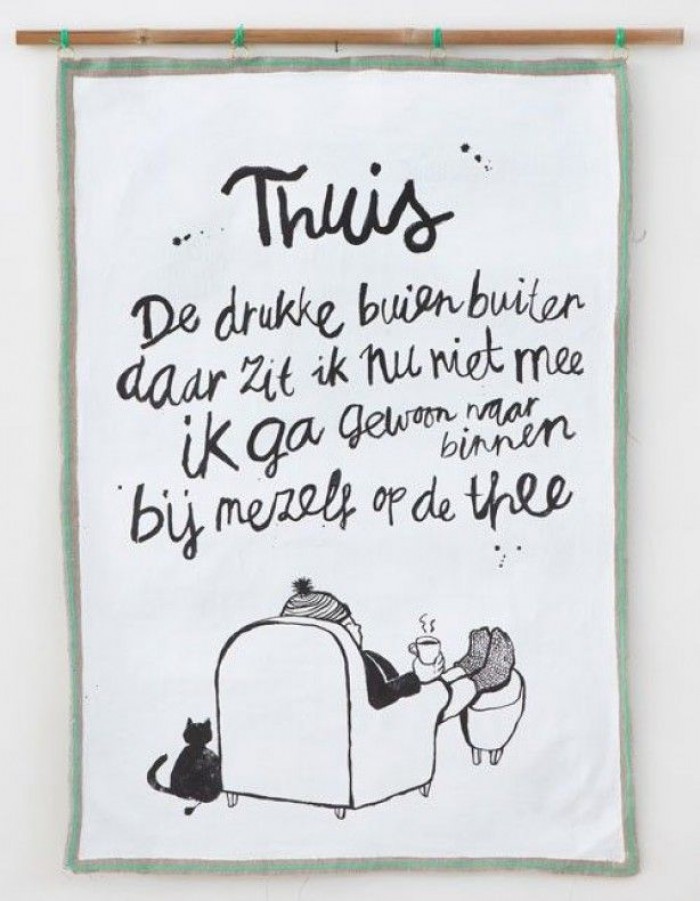 Thuis
De drukke buien buiten
daar zit ik nu niet mee
ik ga gewoon naar
binnen
bij mezelf op de thee